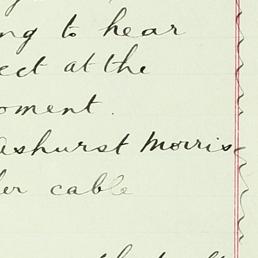 ng to hear
ect at the
oment.
ashurst Morris
ler cable